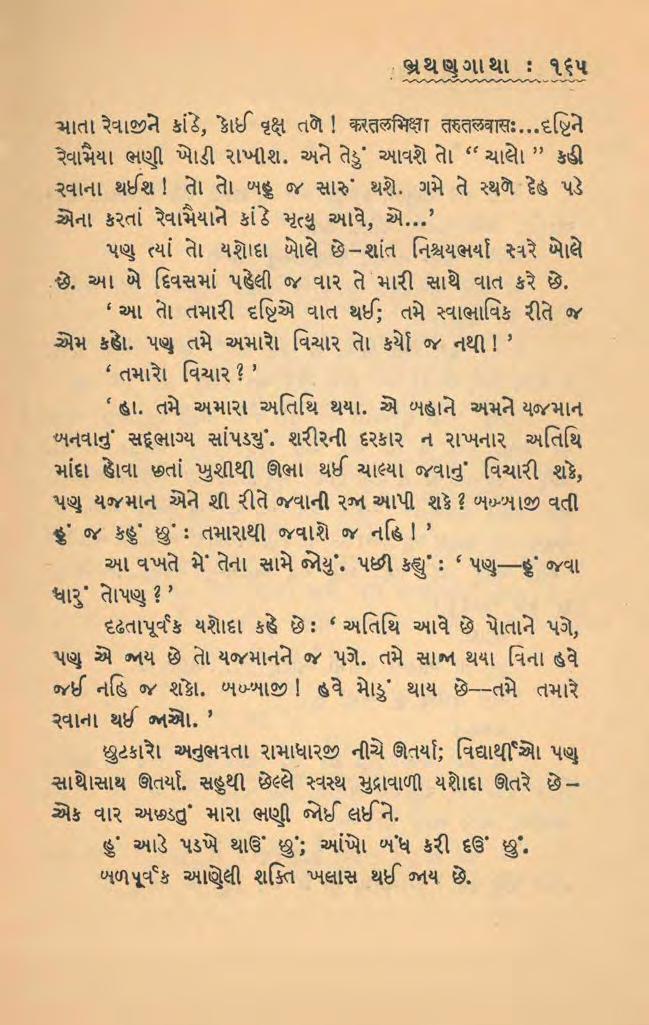 ભ્રમણગાથા : ૧૬૫
માતા રેવાજીને કાંઠે, કોઈ વૃક્ષ તળે ! करतलभिक्षा तरुतलवासः...દૃષ્ટિને
રેવામૈયા ભણી ખોડી રાખીશ. અને તેડું આવશે તો “ ચાલો ” કહી
રવાના થઈશ ! તો તો બહુ જ સારું થશે. ગમે તે સ્થળે દેહ પડે
એના કરતાં રેવામૈયાને કાંઠે મૃત્યુ આવે, એ...’
પણ ત્યાં તો યશોદા બોલે છે–શાંત નિશ્ચયભર્યા સ્વરે બોલે
છે. આ બે દિવસમાં પહેલી જ વાર તે મારી સાથે વાત કરે છે.
‘ આ તો તમારી દૃષ્ટિએ વાત થઈ; તમે સ્વાભાવિક રીતે જ
એમ કહો. પણ તમે અમારો વિચાર તો કર્યો જ નથી ! ’
‘ તમારો વિચાર ? ’
‘ હા. તમે અમારા અતિથિ થયા. એ બહાને અમને યજમાન
બનવાનું સદ્દભાગ્ય સાંપડ્યું. શરીરની દરકાર ન રાખનાર અતિથિ
માંદા હોવા છતાં ખુશીથી ઊભા થઈ ચાલ્યા જવાનું વિચારી શકે,
પણ યજમાન એને શી રીતે જવાની રજા આપી શકે ? બબ્બાજી વતી
હું જ કહું છું : તમારાથી જવાશે જ નહિ ! ’
આ વખતે મેં તેના સામે જોયું. પછી કહ્યું : ‘ પણ—હું જવા
ધારું તોપણ ? ’
દૃઢતાપૂર્વક યશોદા કહે છે : ‘ અતિથિ આવે છે પોતાને પગે,
પણ એ જાય છે તો યજમાનને જ પગે. તમે સાજા થયા વિના હવે
જઈ નહિ જ શકો. બબ્બાજી ! હવે મોડું થાય છે--તમે તમારે
રવાના થઈ જાઓ. ’
છુટકારો અનુભવતા રામાધારજી નીચે ઊતર્યા; વિદ્યાર્થીઓ પણ
સાથોસાથ ઊતર્યા. સહુથી છેલ્લે સ્વસ્થ મુદ્રાવાળી યશોદા ઊતરે છે –
એક વાર અછડતું મારા ભણી જોઈ લઈને.
હું આડે પડખે થાઉં છું; આંખો બંધ કરી દઉં છું.
બળપૂર્વક આણેલી શક્તિ ખલાસ થઈ જાય છે.